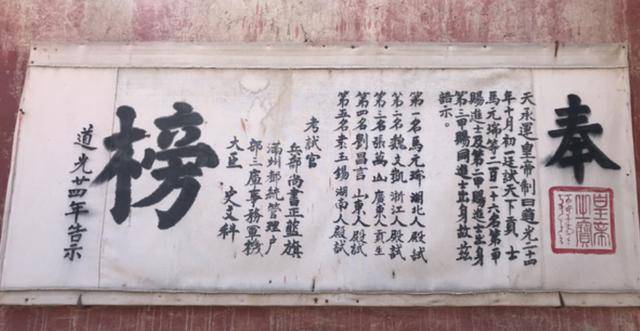 奉
皇帝
之寶
天承運皇帝制曰道光二十四
年十月初一廷試天下貢 士
馬元瑞等二百一十六人第一甲
賜進士及第二甲賜進士出身
第三甲賜同進士出身故茲
誥示。
第一名馬元瑞湖北人殿試
第二名魏文凱浙江人殿試
第三名張萬山廣東人貢生
第四名劉昌言山東人殿試
第五名秦玉錫湖南人殿試
考試官
兵部尚書正藍旗
滿州都統管理户
部三庫事務軍機
大臣 史文科
榜
道光廿四年告示